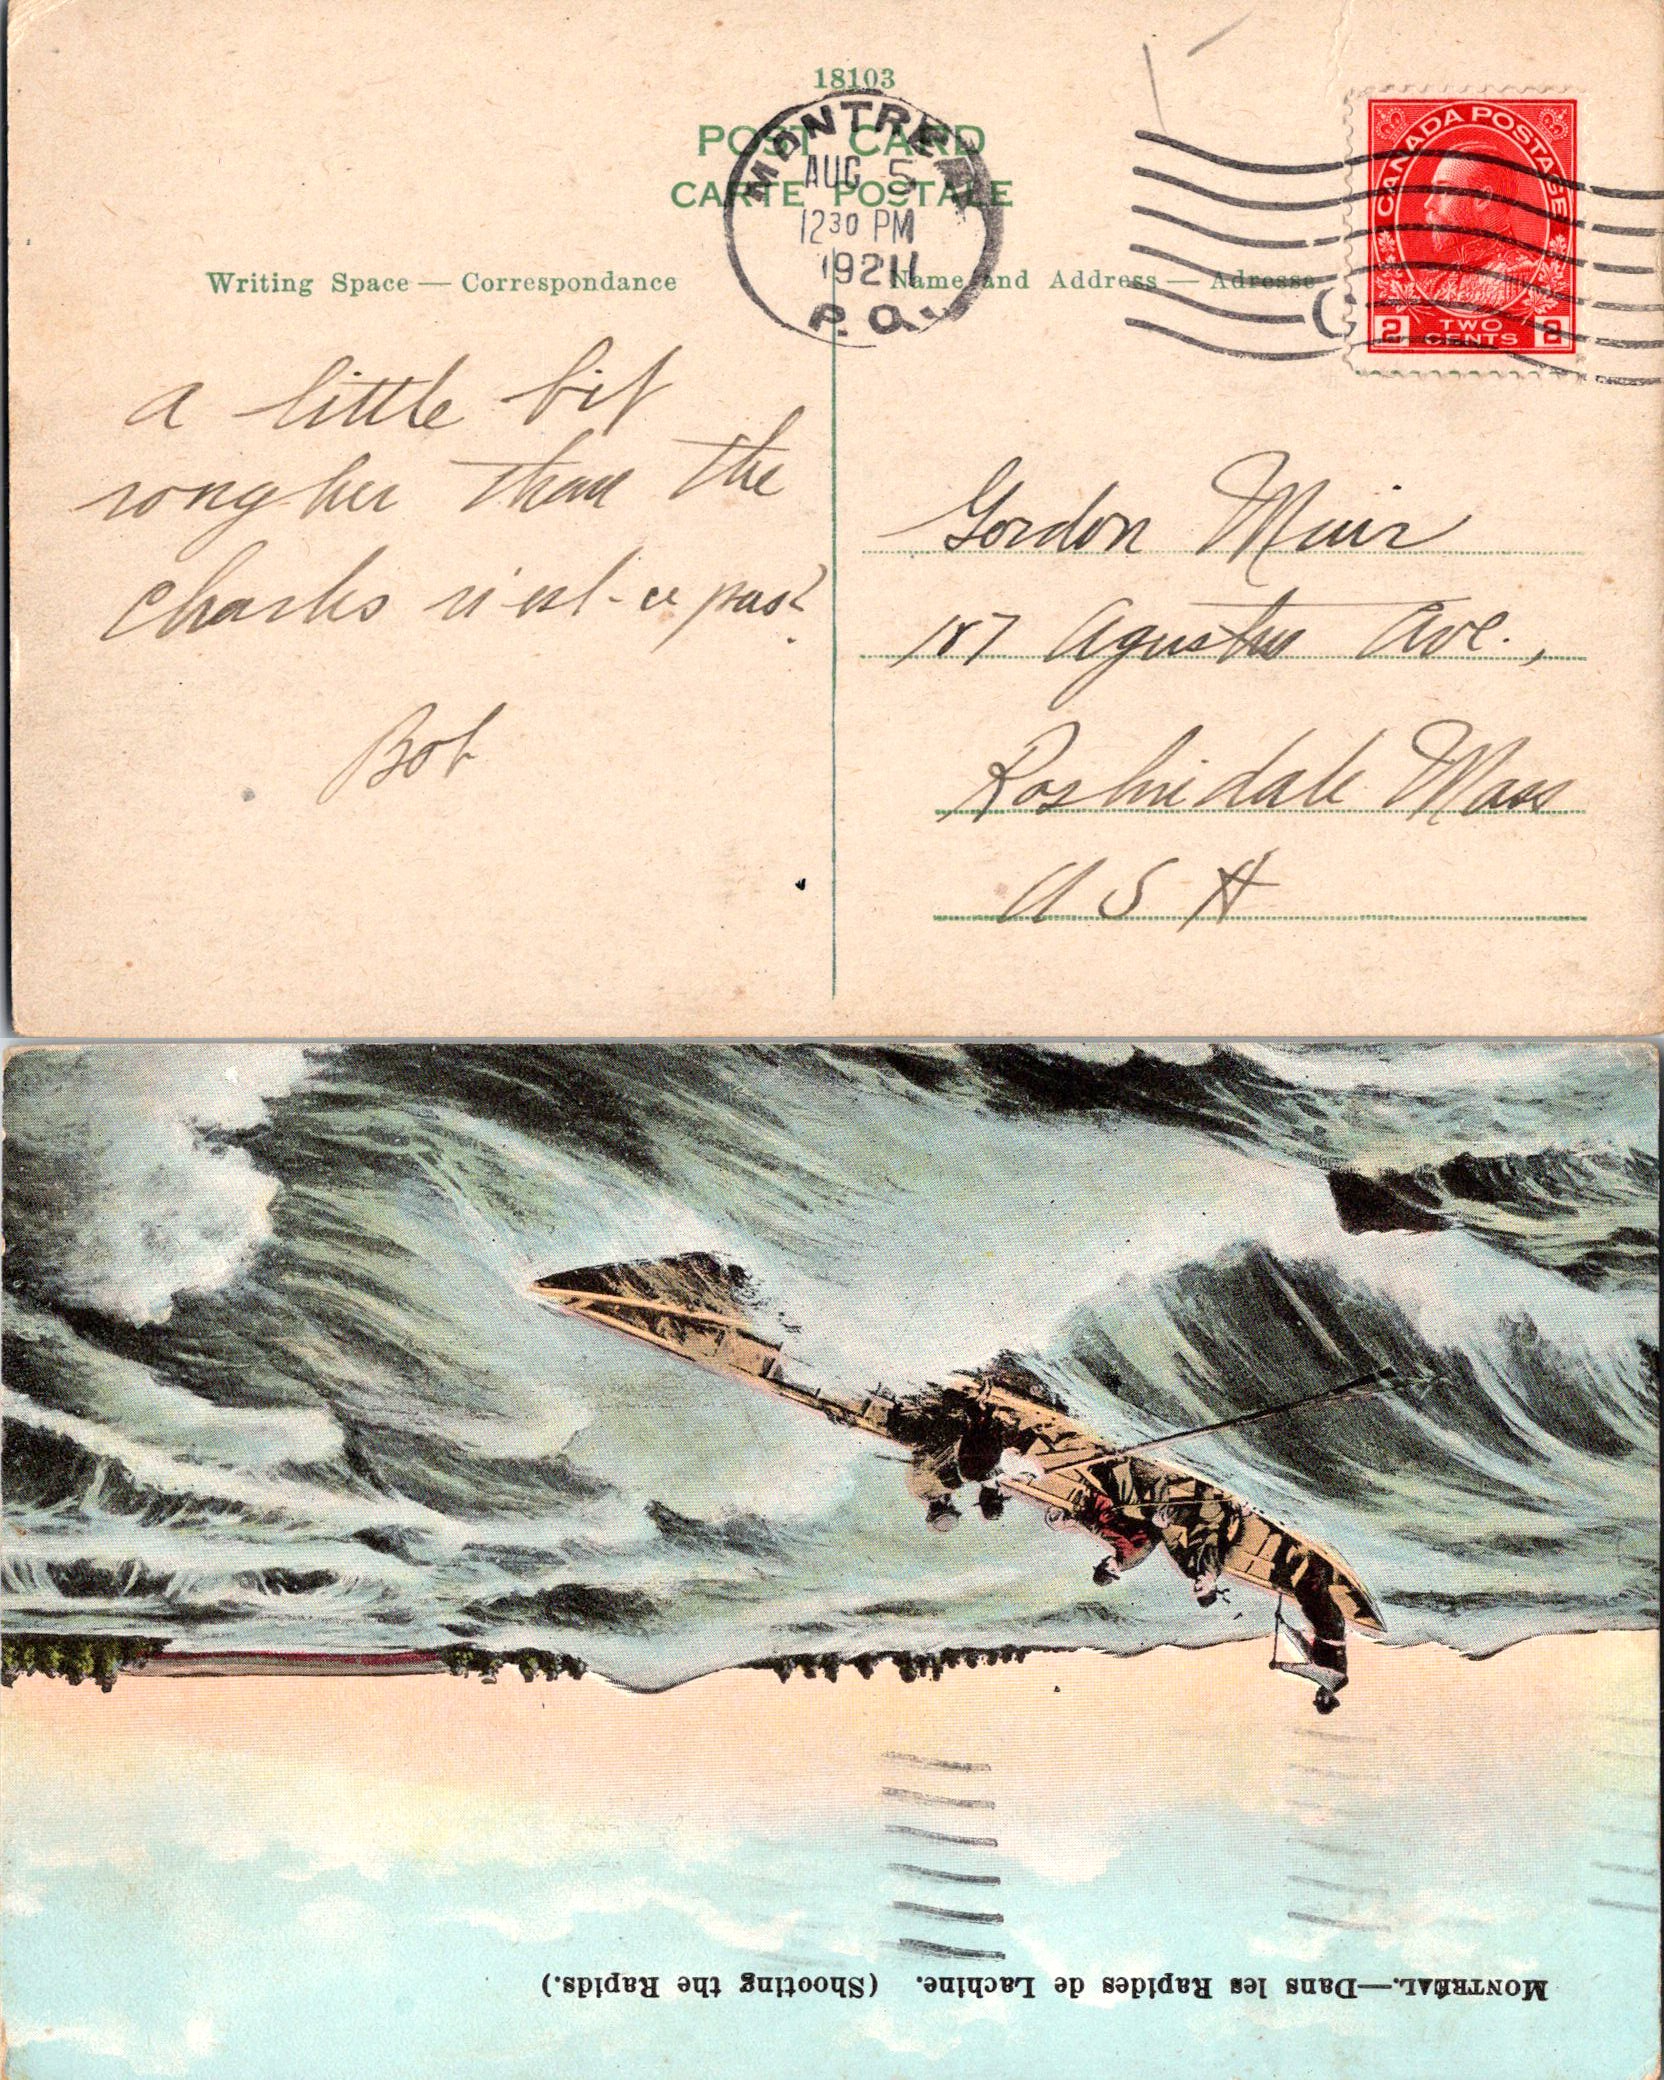 18103
POST CARD
CARTE POSTALE
MONTREAL
AUG 5
12 30 PM
1921
P.Q.
CANADA POSTAGE
2 TWO CENTS 2
Writing Space — Correspondance
Name and Address — Adresse
a little bit
rougher than the
Charles n'est-ce pas?
Bob
Gordon Muir
187 Agustus Ave.,
Roslindale Mass
U S A
MONTRÉAL.—Dans les Rapides de Lachine. (Shooting the Rapids.)